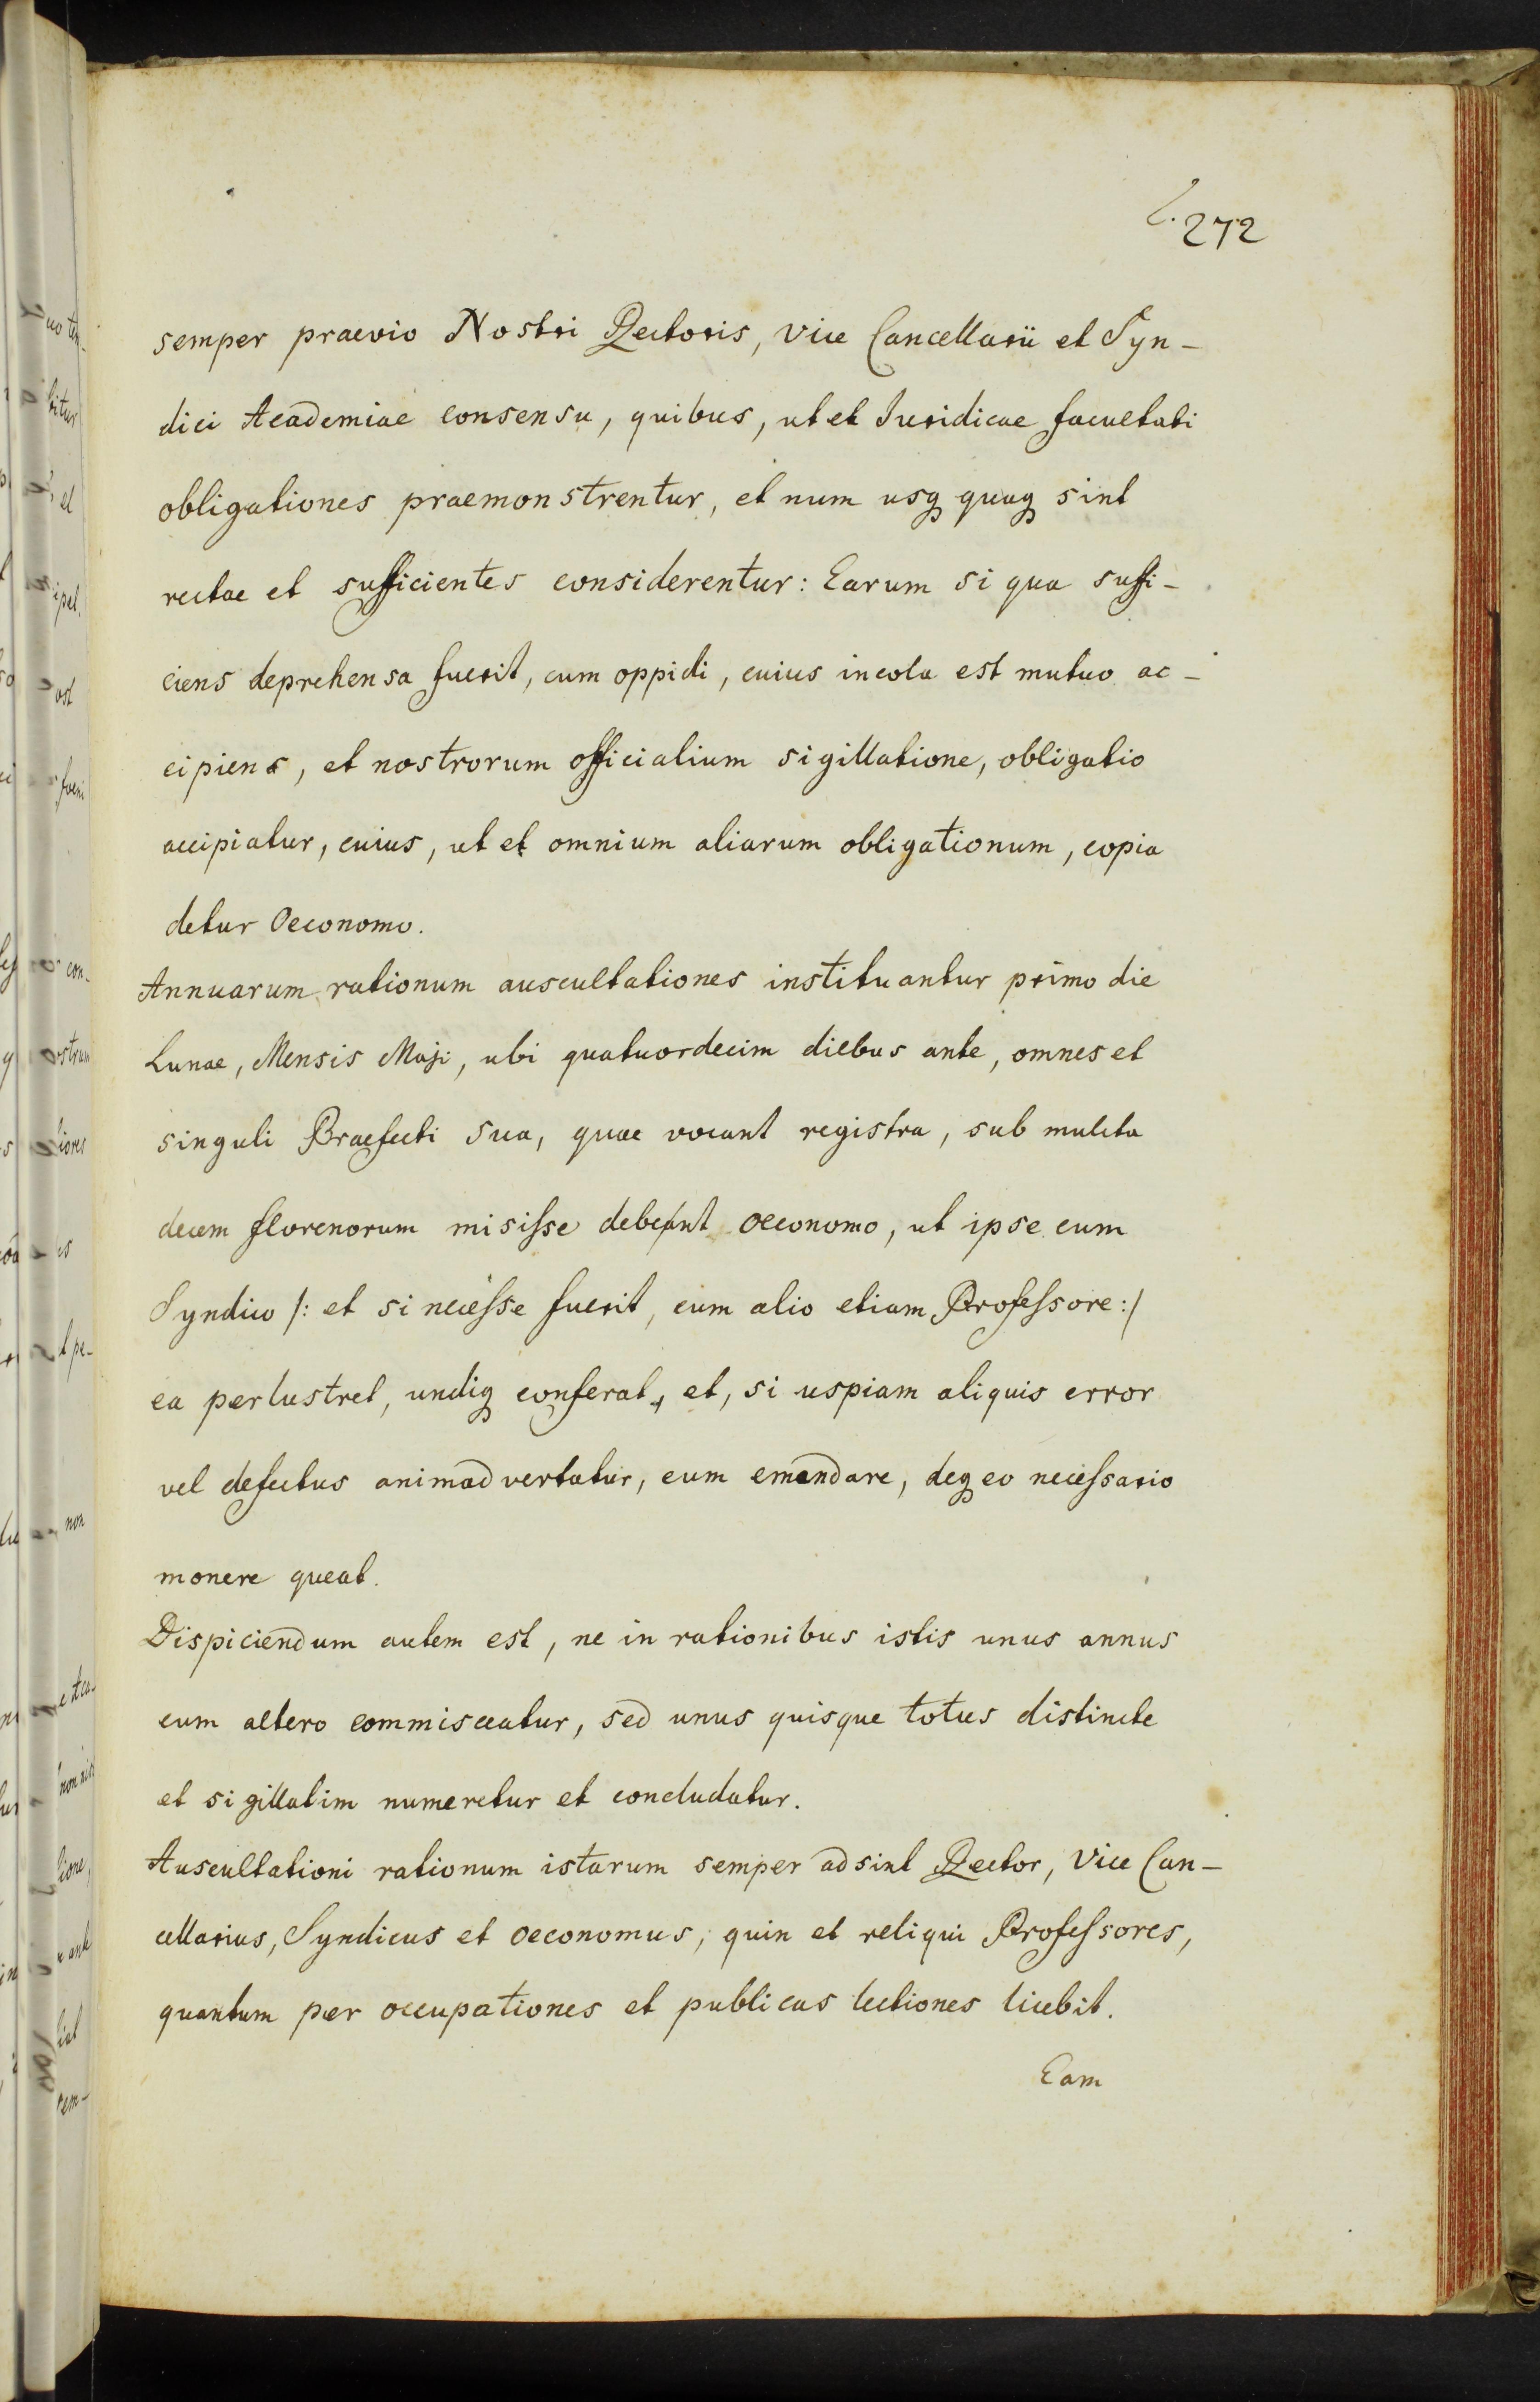 272
semper praevio Nostri Rectoris, Vice Cancellarii et Syn-
dici Academiae consensu, quibus, ut et Iuridicae facultati
obligationes praemonstrentur, et num usq quaq sint
rectae et sufficientes considerentur: Earum si qua suffi-
ciens deprehensa fuerit, cum oppidi, cuius incola est mutuo ac-
cipiens, et nostrorum officialium sigillatione, obligatio
accipiatur, cuius, ut et omnium aliarum obligationum, copia
detur Oeconomo.
Annuarum rationum auscultationes instituantur primo die
Lunae, Mensis Maji, ubi quatuordecim diebus ante, omnes et
singuli Praefecti sua, quae vocant registra, sub mulcta
decem florenorum misiſse debeant oeconomo, ut ipse cum
Syndico /: et si neceſse fuerit, cum alio etiam Profeſsore :/
ea perlustret, undiq conferat, et, si uspiam aliquis error
vel defectus animadvertatur, eum emendare, deq eo neceſsario
monere queat.
Dispiciendum autem est, ne in rationibus istis unus annus
cum altero commisceatur, sed unus quisque totus distincte
et sigillatim numeretur et concludatur.
Auscultationi rationum istarum semper adsint Rector, Vice Can-
cellarius, Syndicus et oeconomus, quin et reliqui Profeſsores,
quantum per occupationes et publicas lectiones licebit.
Eam